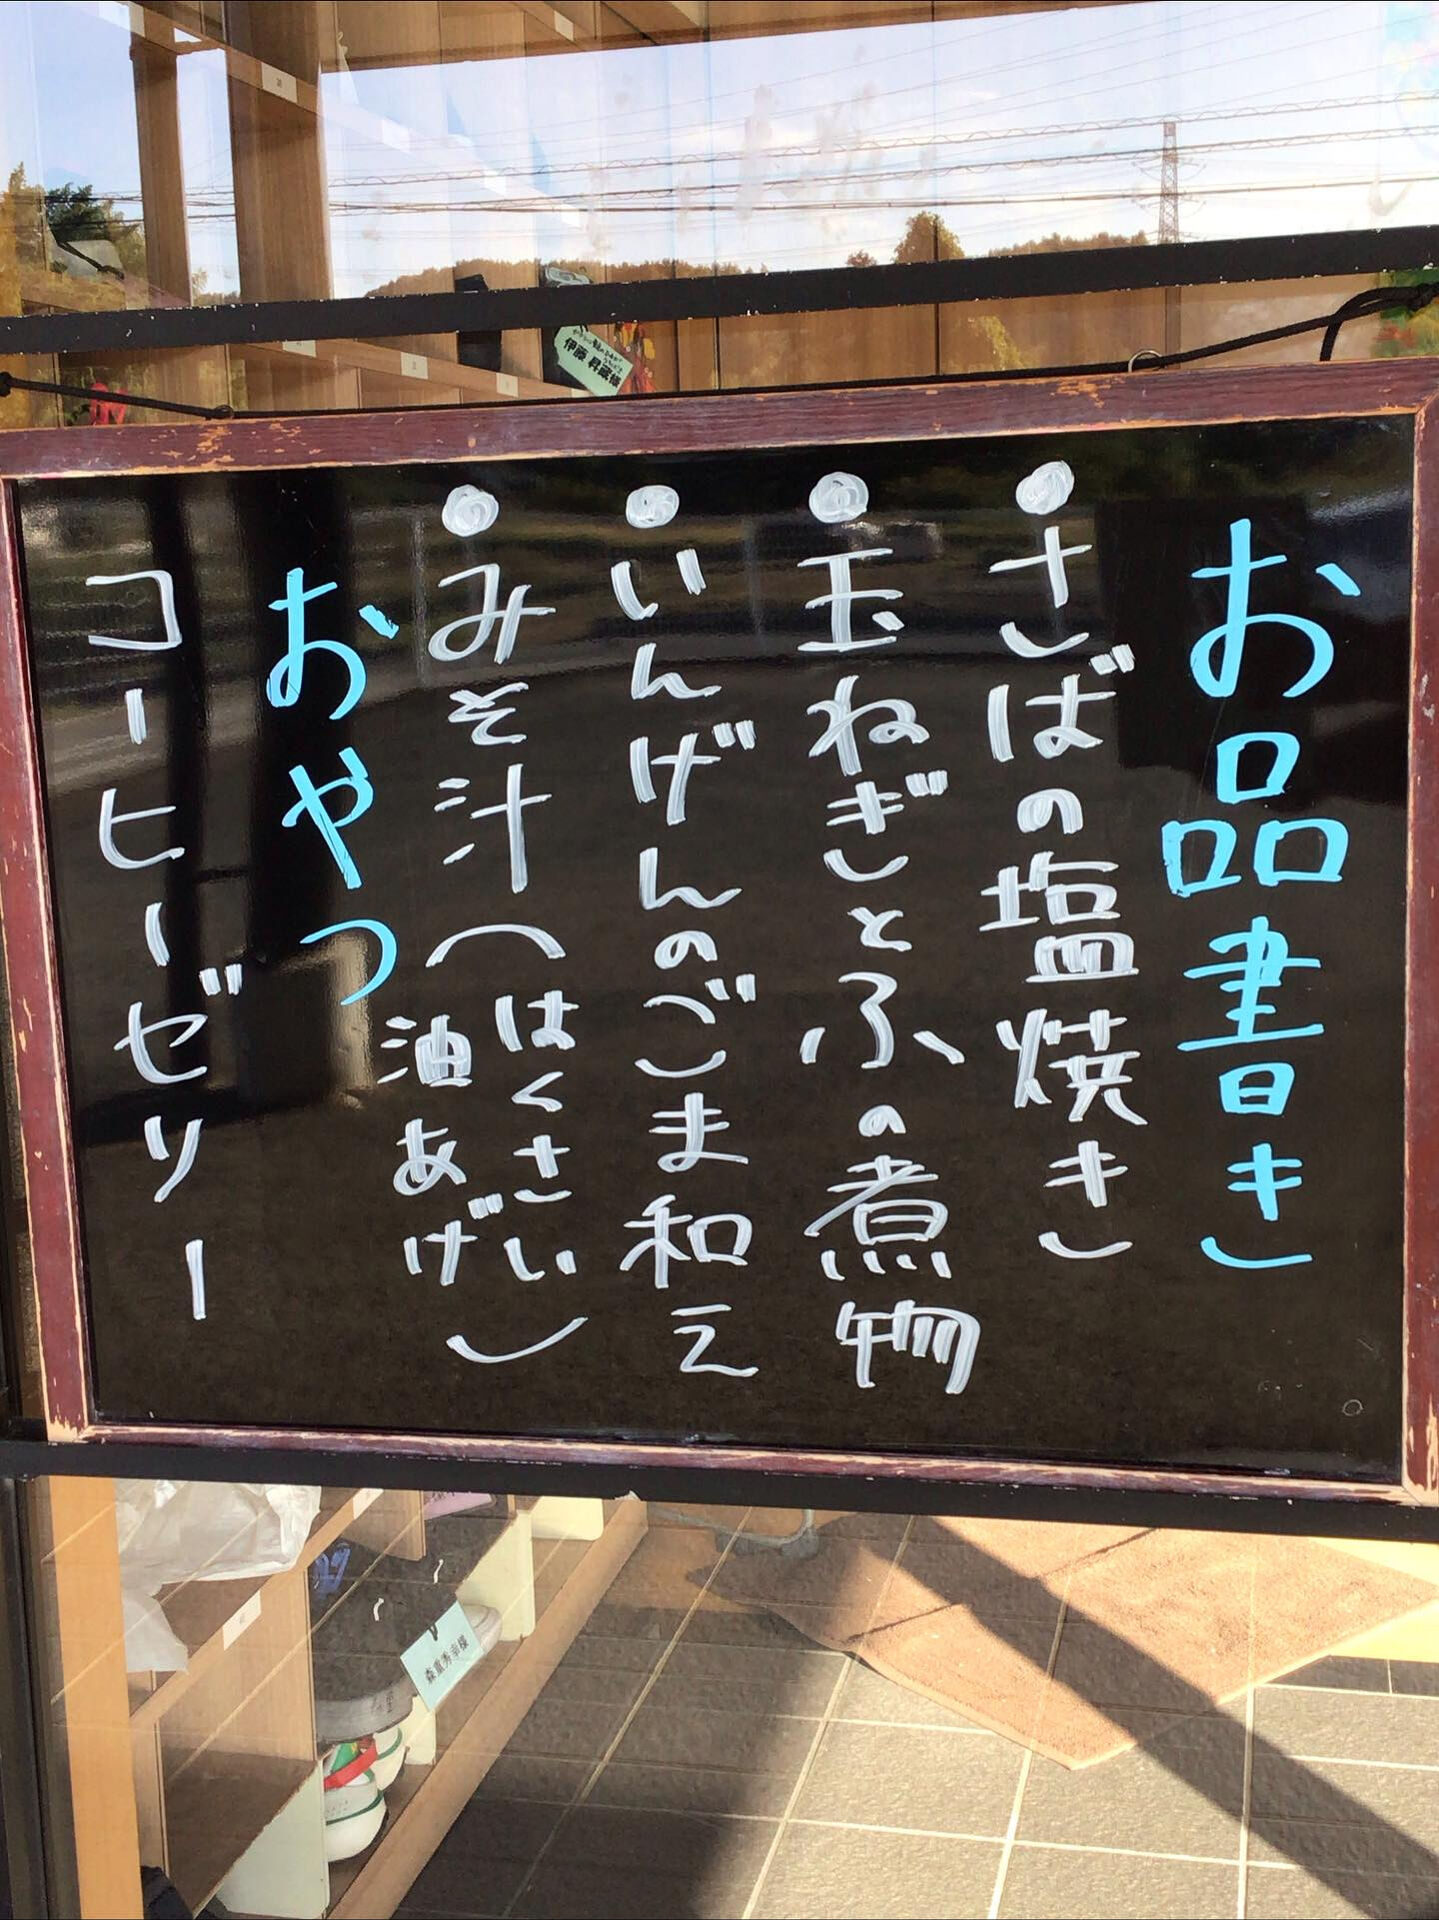 お品書き
●さばの塩焼き
●玉ねぎとふの煮物
●いんげんのごま和え
●みそ汁(はくさい
油あげ)
おやつ
コーヒーゼリー